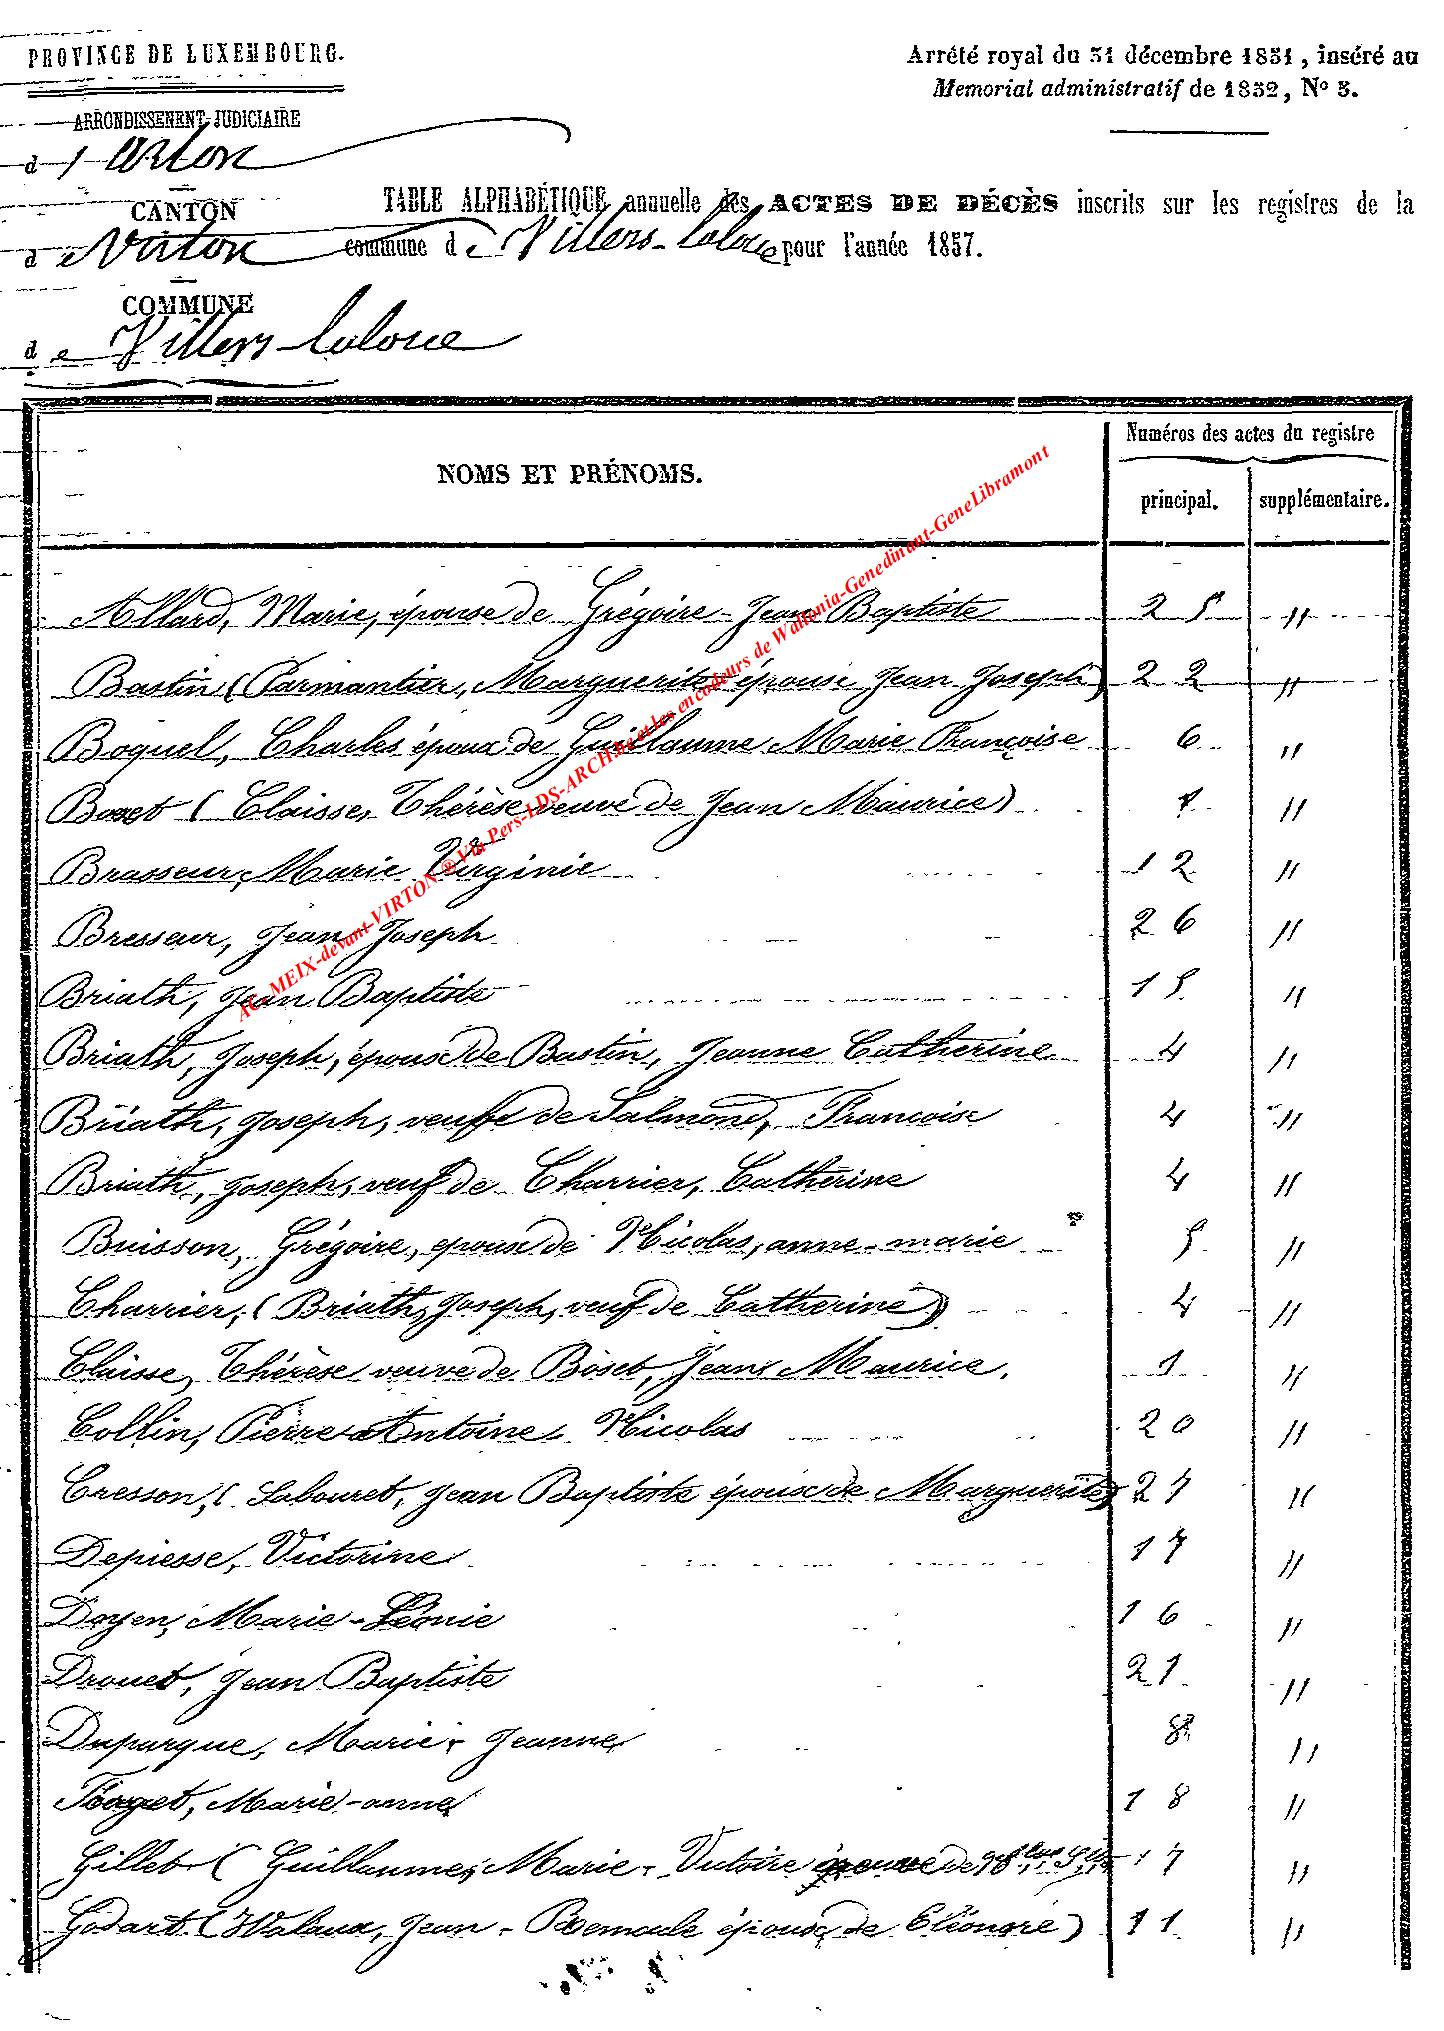 PROVINCE DE LUXEMBOURG.
Arrêté royal du 31 décembre 1831, inséré au
Memorial administratif de 1832, No 3.
ARRONDISSEMENT JUDICIAIRE
d'Arlon
CANTON
de Virton
TABLE ALPHABÉTIQUE annuelle des ACTES DE DÉCÈS inscrits sur les registres de la
commune de Villers-laloue pour l'année 1857.
COMMUNE
de Villers-laloue
NOMS ET PRÉNOMS.
Numéros des actes du registre
principal. supplémentaire.
Allard, Marie, épouse de Grégoire - Jean Baptiste 25 "
Bastin (Parmantier, Marguerite épouse Jean Joseph) 22 "
Boquel, Charles époux de Guillaume Marie Françoise 6 "
Boset (Claisse, Thérèse veuve de Jean Maurice) 1 "
Brasseur, Marie Virginie 12 "
Bresseur, Jean Joseph 26 "
Briath, Jean Baptiste 15 "
Briath, Joseph, épouse de Bastin, Jeanne Catherine 4 "
Briath, Joseph, veuf de Salmond, Francoise 4 "
Briath, Joseph, veuf de Charrier, Catherine 4 "
Buisson, Grégoire, epoux de Nicolas, anne-marie 5 "
Charrier, (Briath, Joseph, veuf de Catherine) 4 "
Claisse, Thérèse veuve de Boset, Jean Maurice. 1 "
Collin, Pierre Antoine Nicolas 20 "
Cresson, (Labouret, Jean Baptiste époux de Marguerite) 27 "
Depiesse, Victorine 17 "
Doyen, Marie-Léonie 16 "
Drouet, Jean Baptiste 21 "
Duparque, Marie-Jeanne 8 "
Forget, Marie-anne 18 "
Gillet (Guillaume, Marie-Victoire de 17 "
Godart (Walaux, Jean - épouse de Eléonore) 11 "
AC-MEIX-devant-VIRTON ® Via Pers-LDS-ARCH.be et les encodeurs de Wallonia-Genedinant-GeneLibramont